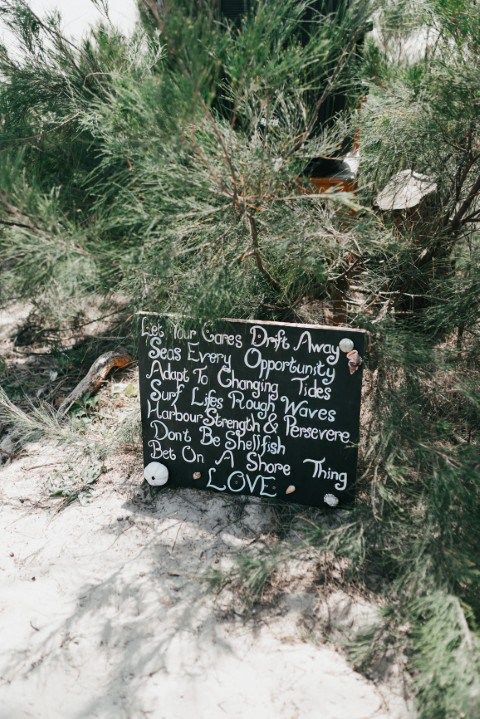 Let Your Cares Drift Away
Seas Every Opportunity
Adapt To Changing Tides
Surf Lifes Rough Waves
Harbour Strength & Persevere
Don't Be Shellfish
Bet On A Shore Thing
LOVE